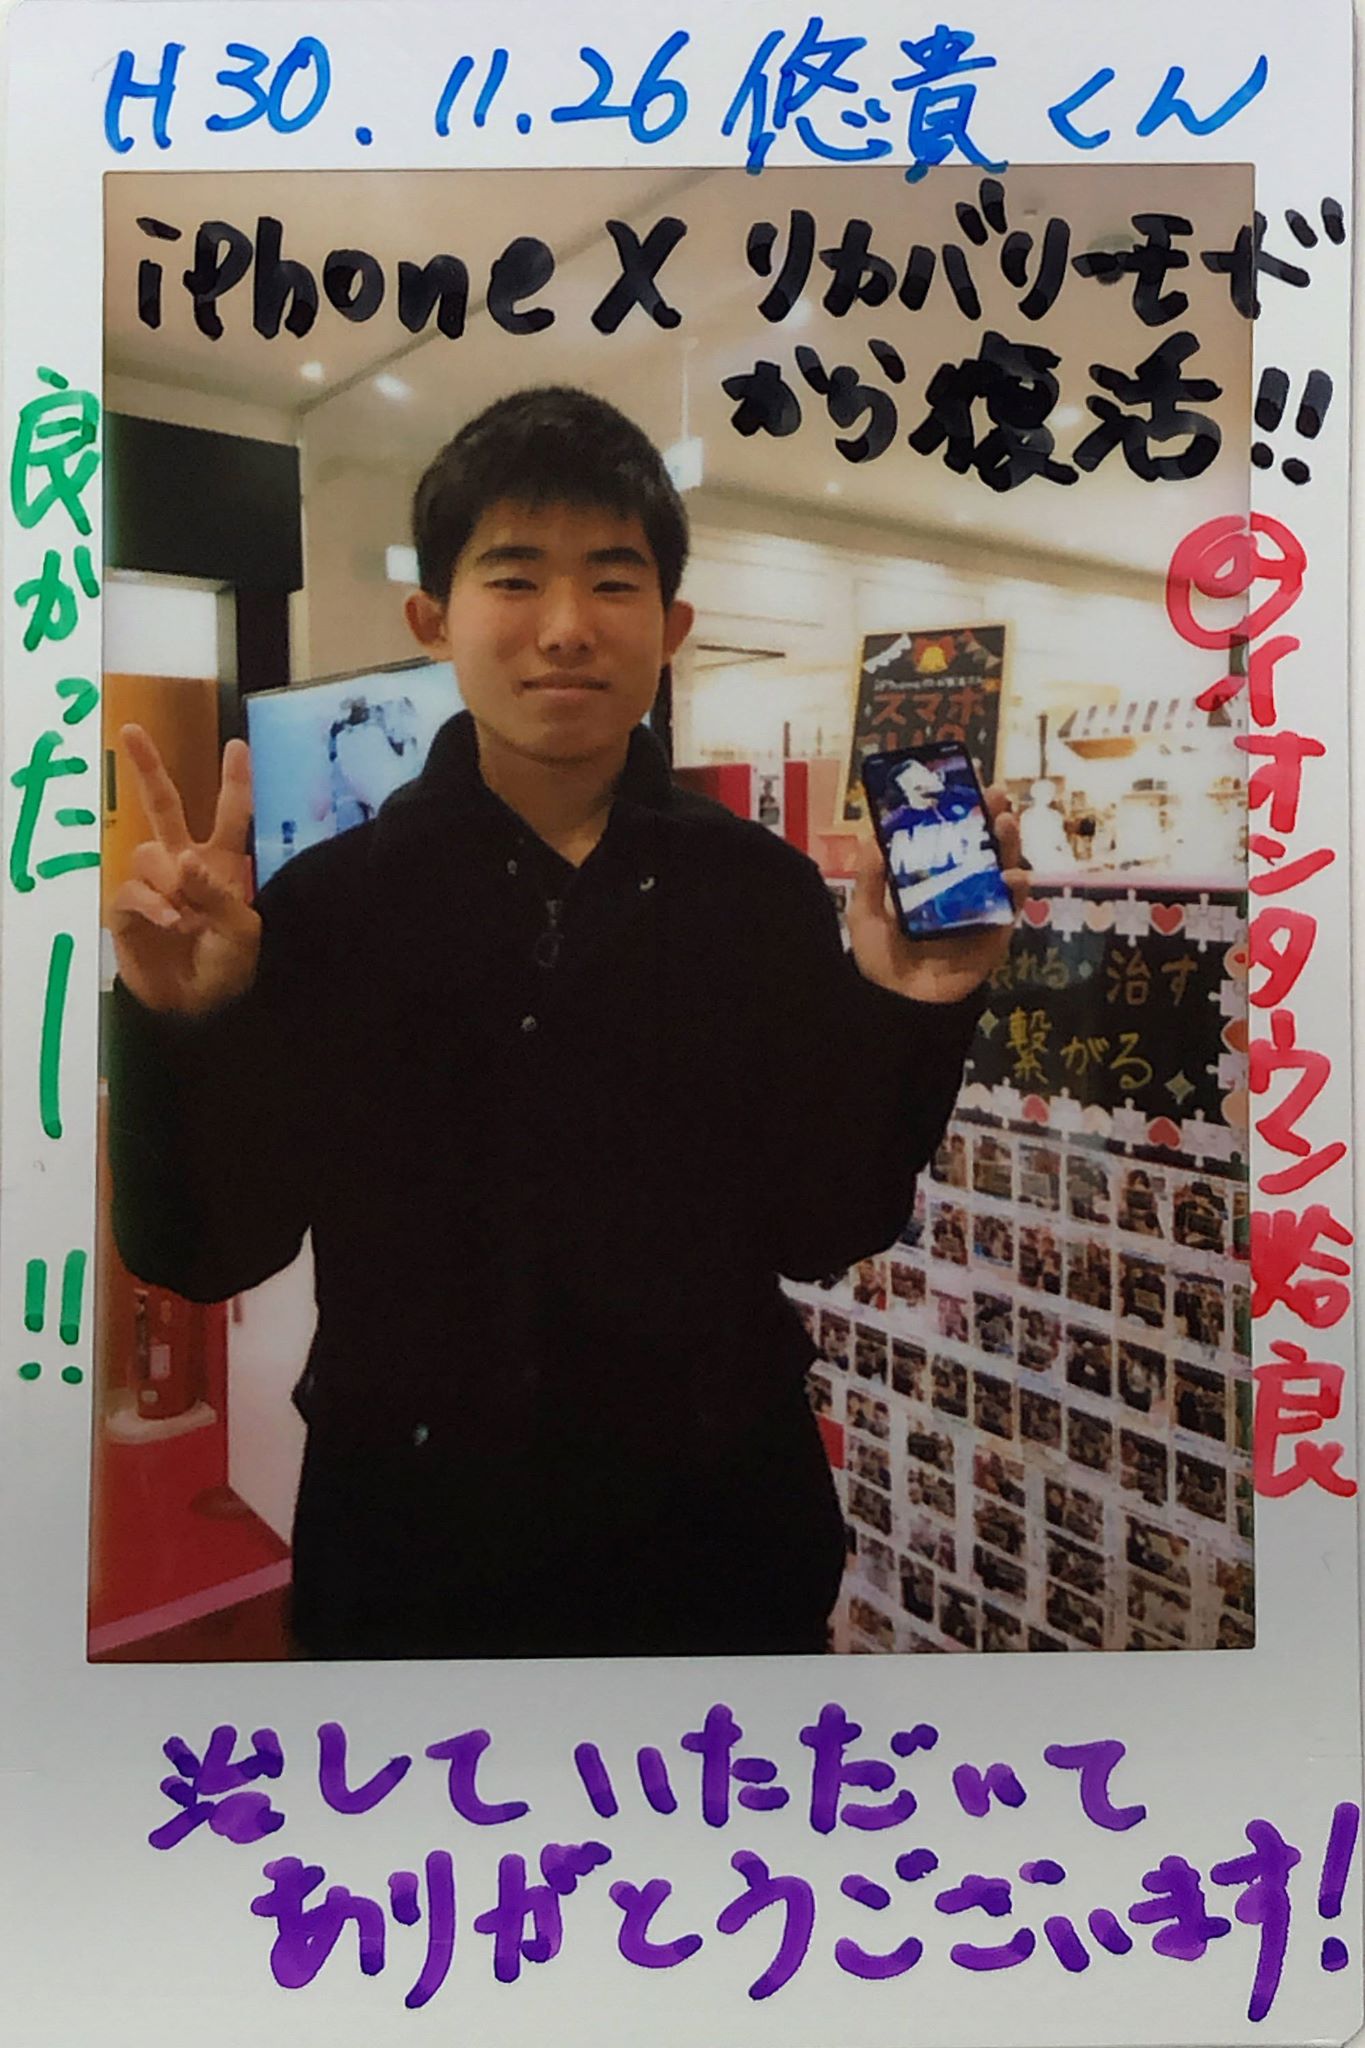 H30.11.26 悠貴くん
iPhone X リカバリーモード
から復活!!
良かったー!!
@イオンタウン姶良
スマホ
治す
繋がる
NIKE
治していただいて
ありがとうございます!